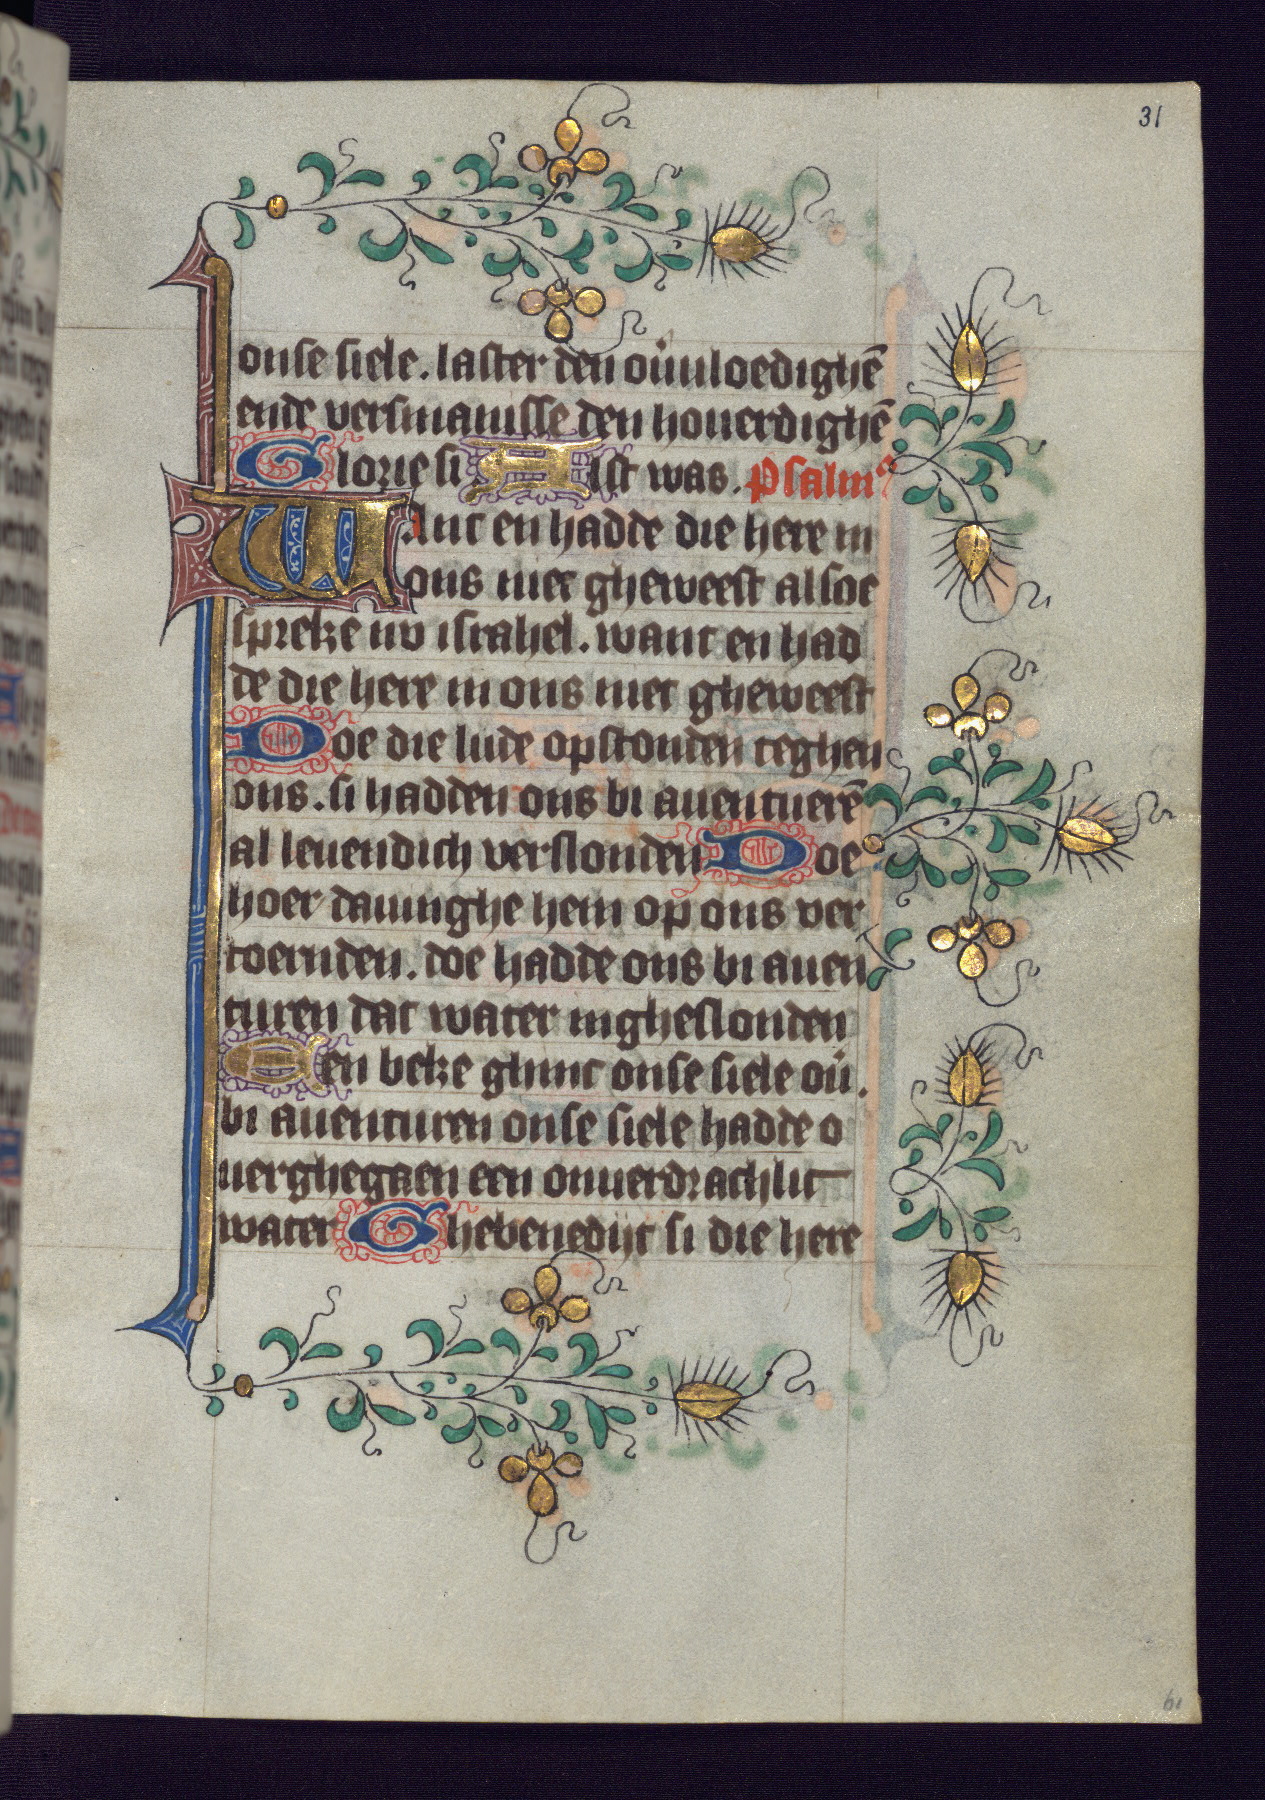 31
onse siele. laster den ou̇uloedighē
ende versmanisse den houerdighē
Glorie si Alst was. Psalm
Want en hadde die here in
ons niet gheweest alsoe
spreke nv israhel. want en had
de die here in ons niet gheweest
Doe die lude opstonden teghen
ons. si hadden ons bi auentuerē
al leuendich verslonden Doe
hoer dauinghe hem op ons ver
toernden. doe hadde ons bi auen
turen dat water ingheslonden
Een beke ghinc onse siele ou̇.
bi auenturen onse siele hadde o
uerghegaen een onuerdrachlic
water Ghebenedijt si die here